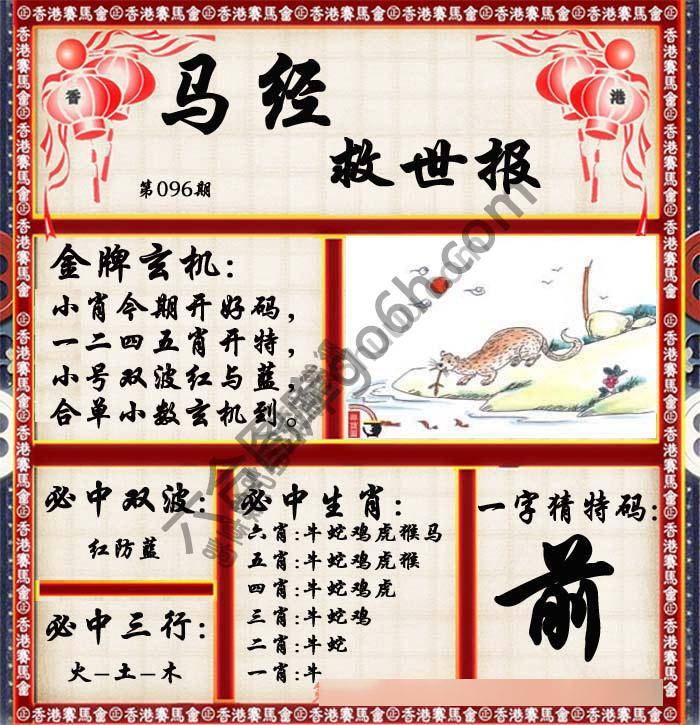 香港賽馬會㊣香港賽馬會㊣香港賽馬會㊣香港賽馬會㊣香港賽馬會㊣香港賽馬會
香
港
马经
救世报
第096期
金牌玄机:
小肖今期开好码,
一二四五肖开特,
小号双波红与蓝,
合单小数玄机到。
必中双波:
红防蓝
必中三行:
火–土–木
必中生肖:
六肖:牛蛇鸡虎猴马
五肖:牛蛇鸡虎猴
四肖:牛蛇鸡虎
三肖:牛蛇鸡
二肖:牛蛇
一肖:牛
一字猜特码:
前